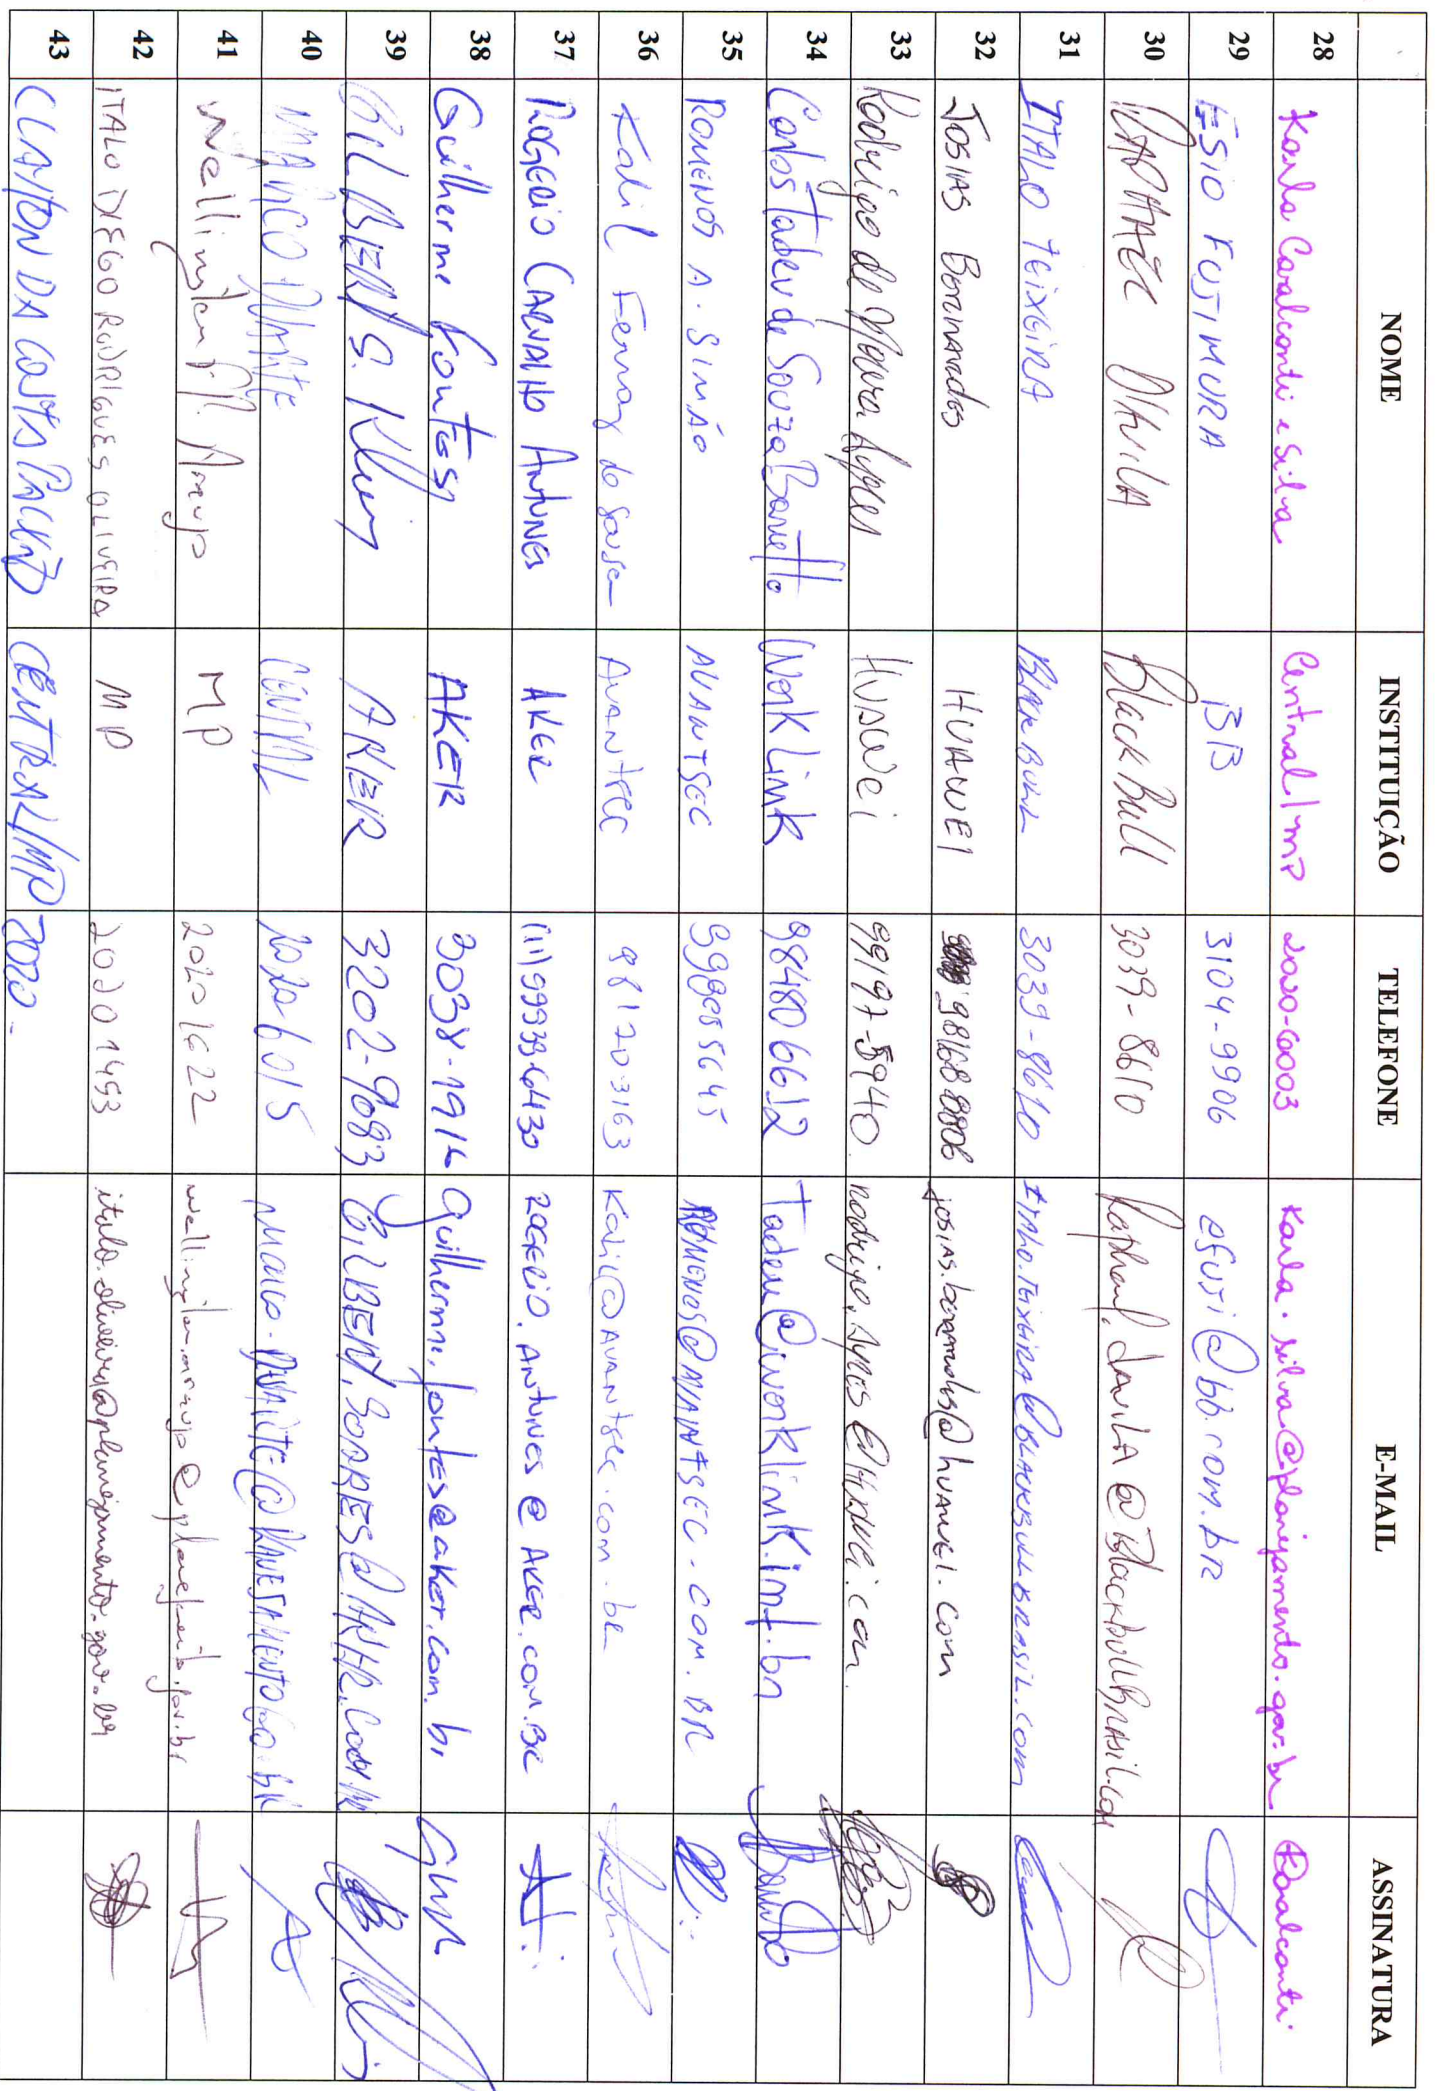 NOME INSTITUIÇÃO TELEFONE E-MAIL ASSINATURA
28 Karla Cavalcanti e Silva Central/MP 2020-6003 karla.silva@planejamento.gov.br Kavalcanti
29 ÉSIO FUJIMURA BB 3104-9906 efuji@bb.com.br
30 RAPHAEL DAVILA Black Bull 3039-8610 Raphael.davila@BlackbullBrasil.com
31 ITALO TEIXEIRA BLACK BULL 3039-8610 ITALO.TEIXEIRA@BLACKBULLBRASIL.COM
32 JOSIAS HUAWEI 981688806 huawei.com
33 Rodrigo de Moura Ayres HUAWEI 99197-5940 rodrigo.ayres@huawei.com
34 Carlos Tadeu de Souza Barretto WorkLink 984806612 Tadeu@worklink.inf.br
35 ROMENOS A. SIMÃO AVANTSEC ROMENOS@AVANTSEC.COM.BR
36 Kalil Ferraz de Sousa Avantsec 981203163 Kalil@avantsec.com.br
37 ROGERIO CARVALHO ANTUNES AKER (11)999336430 ROGERIO.ANTUNES@AKER.COM.BR
38 Guilherme Fontes AKER 3038-1916 guilherme.fontes@aker.com.br
39 GILBERT S. AKER 3202-9083 GILBERT.SOARES@AKER.COM.BR
40 MARCO CENTRAL 20206015
41 Wellington M. Araujo MP 20201622 wellington.araujo@planejamento.gov.br
42 ITALO DIEGO RODRIGUES OLIVEIRA MP 20201453 italo.oliveira@planejamento.gov.br
43 CLAYTON DA COSTA CENTRAL/MP 2020